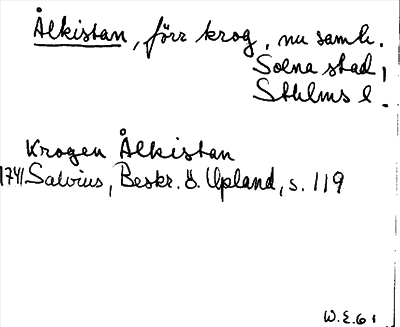 Ålkistan, förr krog, nu samh.
Solna stad,
Sthlms l.
Krogen Ålkistan
1741 Salvius, Beskr. ö. Upland, s. 119
W.E. 61